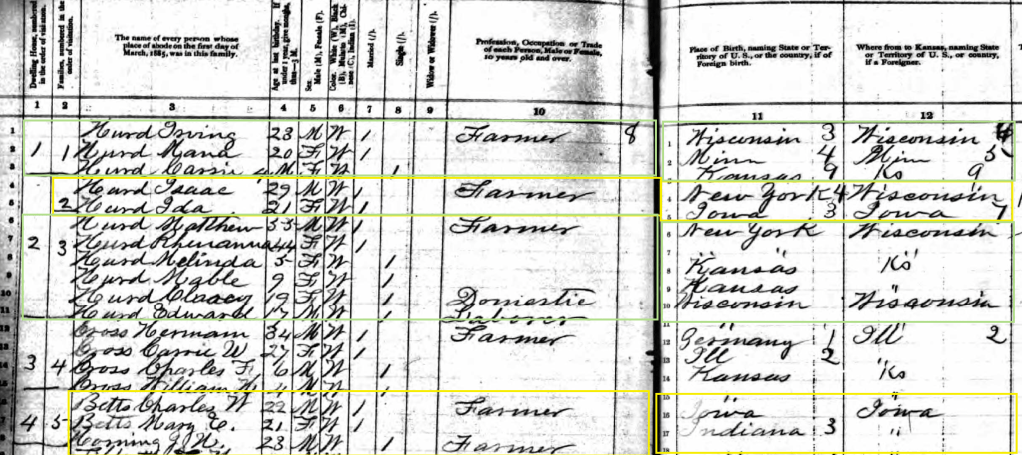 Dwelling House, numbered in the order of visitation.
Families, numbered in the order of visitation.
The name of every person whose place of abode on the first day of March, 1885, was in this family.
Age at last birthday. If under 1 year, give months, thus—3 M.
Sex. Male (M), Female (F).
Color. White (W), Black (B), Mulatto (M), Chinese (C), Indian (I).
Married (/).
Single (/).
Widow or Widower (/).
Profession, Occupation or Trade of each Person, Male or Female, 10 years old and over.
Place of Birth, naming State or Territory of U. S., or the country, if of Foreign birth.
Where from to Kansas, naming State or Territory of U. S., or country, if a Foreigner.
1 2 3 4 5 6 7 8 9 10 11 12
Hurd Irving 23 M W / Farmer 8 Wisconsin 3 Wisconsin
1 1 Hurd Maria 20 F W / Minn 4 Minn 5
Hurd Carrie M F W / Kansas 9 Ks 9
Hurd Isaac 29 M W / Farmer New York 4 Wisconsin
2 Hurd Ida 21 F W / Iowa 3 Iowa 1
Hurd Matthew 55 M W / Farmer New York Wisconsin
2 3 Hurd 44 F W / " "
Hurd Melinda 5 F W / Kansas Ks
Hurd Mable 9 F W / Kansas
Hurd 19 F W / Domestic Wisconsin Wisconsin
Hurd Edward 17 M W / Laborer
Gross Hermann 34 M W / Farmer Germany 1 Ill 2
Gross Carrie W 27 F W / Ill 2 "
3 4 Gross Charles F 6 M W / Kansas Ks
Gross William
Betts Charles W 22 M W / Farmer Iowa Iowa
4 5 Betts Mary C. 21 F W / Indiana 3 "
Horning J. N. 23 M W / Farmer